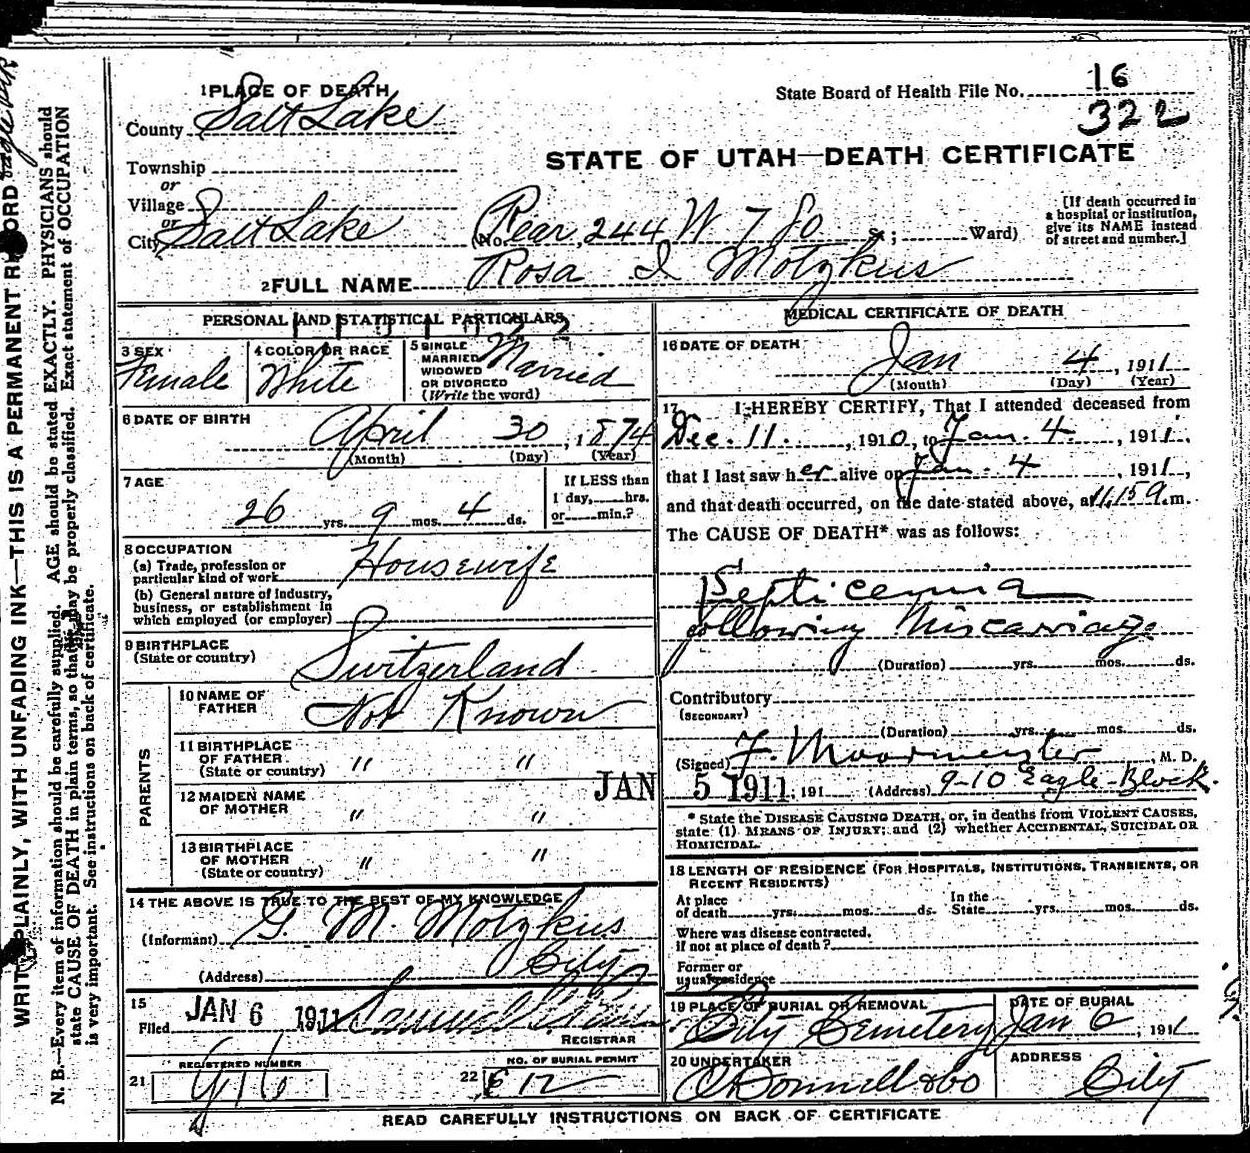 1 PLACE OF DEATH
County Salt Lake
Township
or
Village
or
City Salt Lake
State Board of Health File No. 16
322
STATE OF UTAH—DEATH CERTIFICATE
(No. Rear 244 W 7 So St.; Ward)
[If death occurred in
a hospital or institution,
give its NAME instead
of street and number.]
2 FULL NAME Rosa I Motzkus
PERSONAL AND STATISTICAL PARTICULARS
3 SEX
Female
4 COLOR OR RACE
White
5 SINGLE
MARRIED
WIDOWED
OR DIVORCED
(Write the word)
Married
6 DATE OF BIRTH
April 30, 1874
(Month) (Day) (Year)
7 AGE
26 yrs. 9 mos. 4 ds.
If LESS than
1 day, hrs.
or min.?
8 OCCUPATION
(a) Trade, profession or
particular kind of work Housewife
(b) General nature of industry,
business, or establishment in
which employed (or employer)
9 BIRTHPLACE
(State or country) Switzerland
PARENTS
10 NAME OF
FATHER Not Known
11 BIRTHPLACE
OF FATHER
(State or country) " "
12 MAIDEN NAME
OF MOTHER " "
13 BIRTHPLACE
OF MOTHER
(State or country) " "
14 THE ABOVE IS TRUE TO THE BEST OF MY KNOWLEDGE
(Informant) G. M. Motzkus
(Address) City
15
Filed JAN 6 1911
REGISTRAR
REGISTERED NUMBER
21 G16
NO. OF BURIAL PERMIT
22 612
MEDICAL CERTIFICATE OF DEATH
16 DATE OF DEATH
Jan 4, 1911
(Month) (Day) (Year)
17 I HEREBY CERTIFY, That I attended deceased from
Dec. 11., 1910, to Jan. 4., 1911,
that I last saw her alive on Jan. 4, 1911,
and that death occurred, on the date stated above, at 11.15 a.m.
The CAUSE OF DEATH* was as follows:
Septicemia
following Miscarriage
(Duration) yrs. mos. ds.
Contributory
(SECONDARY)
(Duration) yrs. mos. ds.
(Signed) F. Moormeister, M. D.
JAN 5 1911, 191 (Address) 9-10 Eagle Block.
* State the DISEASE CAUSING DEATH, or, in deaths from VIOLENT CAUSES,
state (1) MEANS OF INJURY; and (2) whether ACCIDENTAL, SUICIDAL OR
HOMICIDAL.
18 LENGTH OF RESIDENCE (FOR HOSPITALS, INSTITUTIONS, TRANSIENTS, OR
RECENT RESIDENTS)
At place
of death yrs. mos. ds.
In the
State yrs. mos. ds.
Where was disease contracted,
if not at place of death?
Former or
usual residence
19 PLACE OF BURIAL OR REMOVAL
City Cemetery
DATE OF BURIAL
Jan 6, 1911
20 UNDERTAKER
O'Donnell & Co
ADDRESS
City
READ CAREFULLY INSTRUCTIONS ON BACK OF CERTIFICATE
WRITE PLAINLY, WITH UNFADING INK—THIS IS A PERMANENT RECORD
N. B.—Every item of information should be carefully supplied. AGE should be stated EXACTLY. PHYSICIANS should
state CAUSE OF DEATH in plain terms, so that it may be properly classified. Exact statement of OCCUPATION
is very important. See instructions on back of certificate.